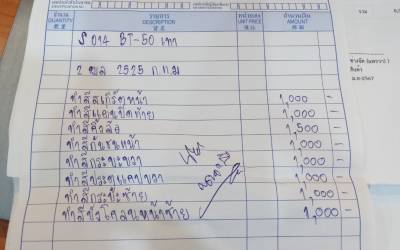 จำนวน รายการ หน่วยละ จำนวนเงิน
QUANTITY DESCRIPTION UNIT PRICE AMOUNT
BT-50 เทา
2 พล 2525 ก.ท.ม
ทำสีสเกิร์ตหน้า 1,000 -
ทำสีแคบปิดท้าย 1,000 -
ทำสีคิ้วล้อ 1,500 -
ทำสีกันชนหน้า 1,000 -
ทำสีกระบะขวา 1,000 -
ทำสีประตูแคปขวา 1,000 -
ทำสีกระบะซ้าย 1,000 -
ทำสีบังโคลนหน้าซ้าย 1,000 -
รวม
สินค้า